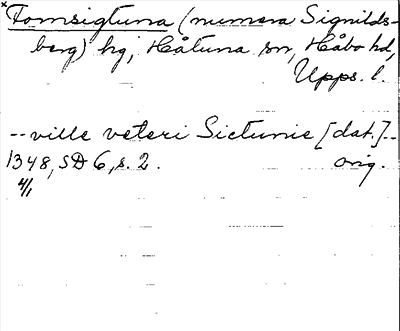 × Fornsigtuna (numera Signilds-
berg) hg, Håtuna sn, Håbo hd,
Upps. l.
-- ville veteri Sictunie [dat.]--
1348, SD 6, s. 2. orig.
4/1